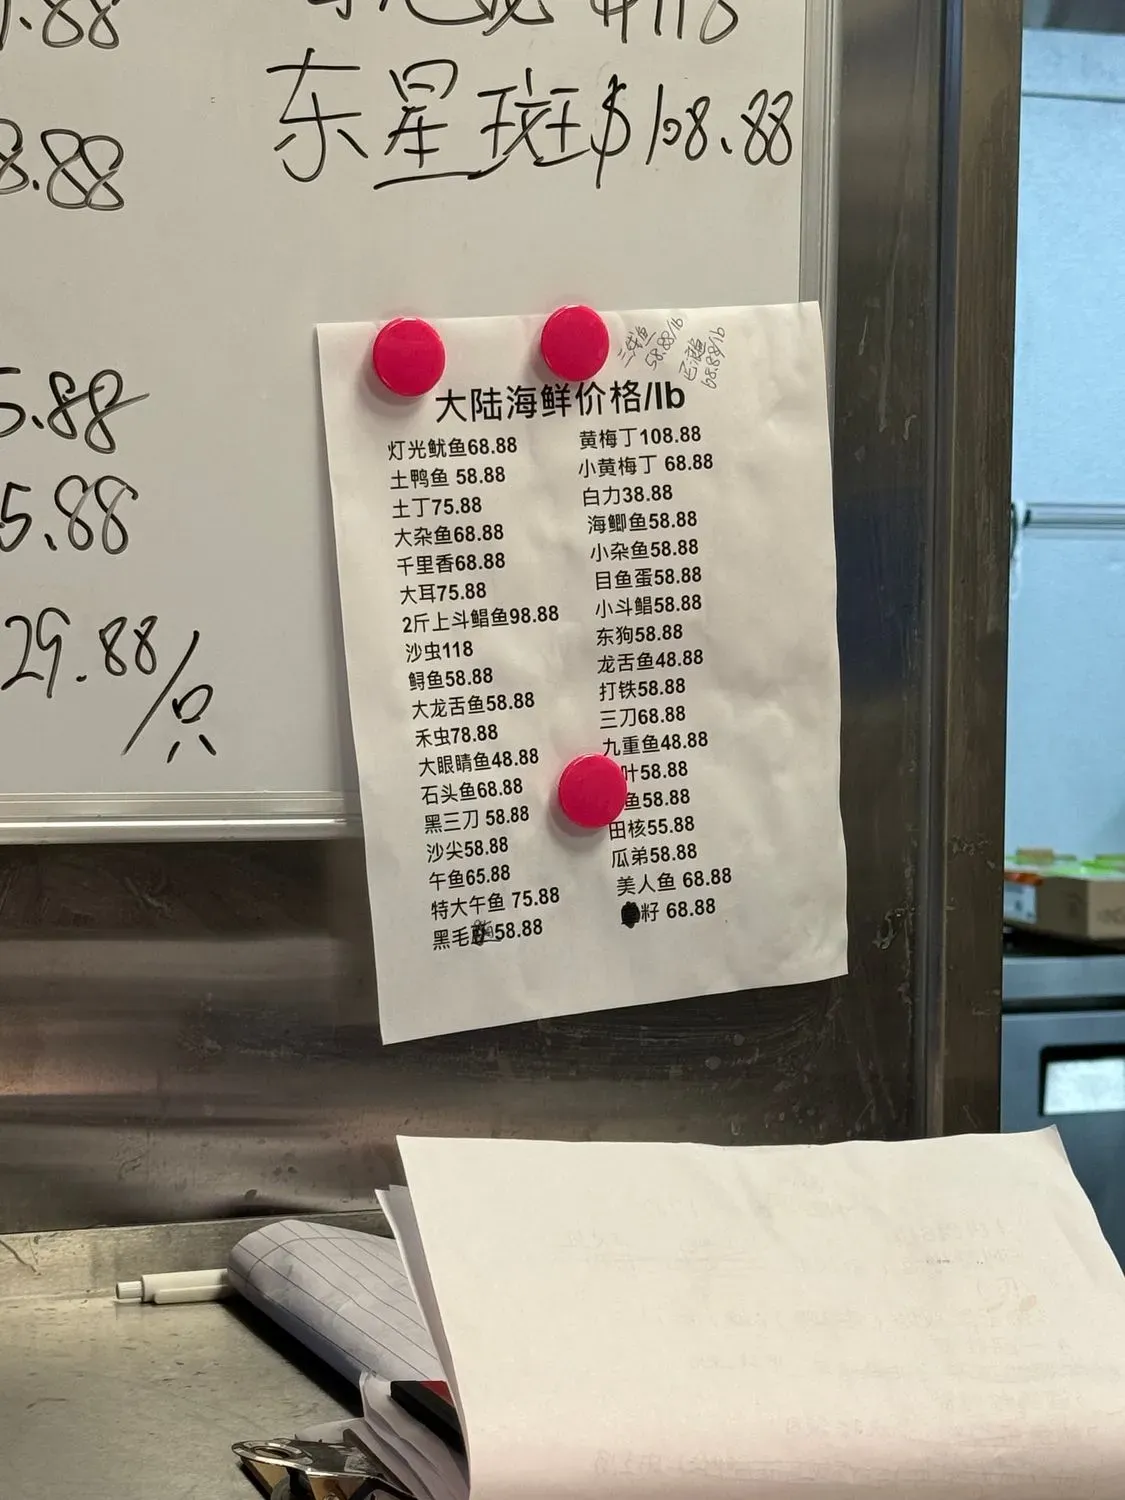 .88
8.88
5.88
5.88
29.88/只
东星斑$108.88
三线鱼
58.88/lb
68.88/lb
大陆海鲜价格/lb
灯光鱿鱼68.88
土鸭鱼 58.88
土丁75.88
大杂鱼68.88
千里香68.88
大耳75.88
2斤上斗鲳鱼98.88
沙虫118
鲟鱼58.88
大龙舌鱼58.88
禾虫78.88
大眼睛鱼48.88
石头鱼68.88
黑三刀 58.88
沙尖58.88
午鱼65.88
特大午鱼 75.88
黑毛 58.88
黄梅丁108.88
小黄梅丁 68.88
白力38.88
海鲫鱼58.88
小杂鱼58.88
目鱼蛋58.88
小斗鲳58.88
东狗58.88
龙舌鱼48.88
打铁58.88
三刀68.88
九重鱼48.88
叶58.88
鱼58.88
田核55.88
瓜弟58.88
美人鱼 68.88
籽 68.88